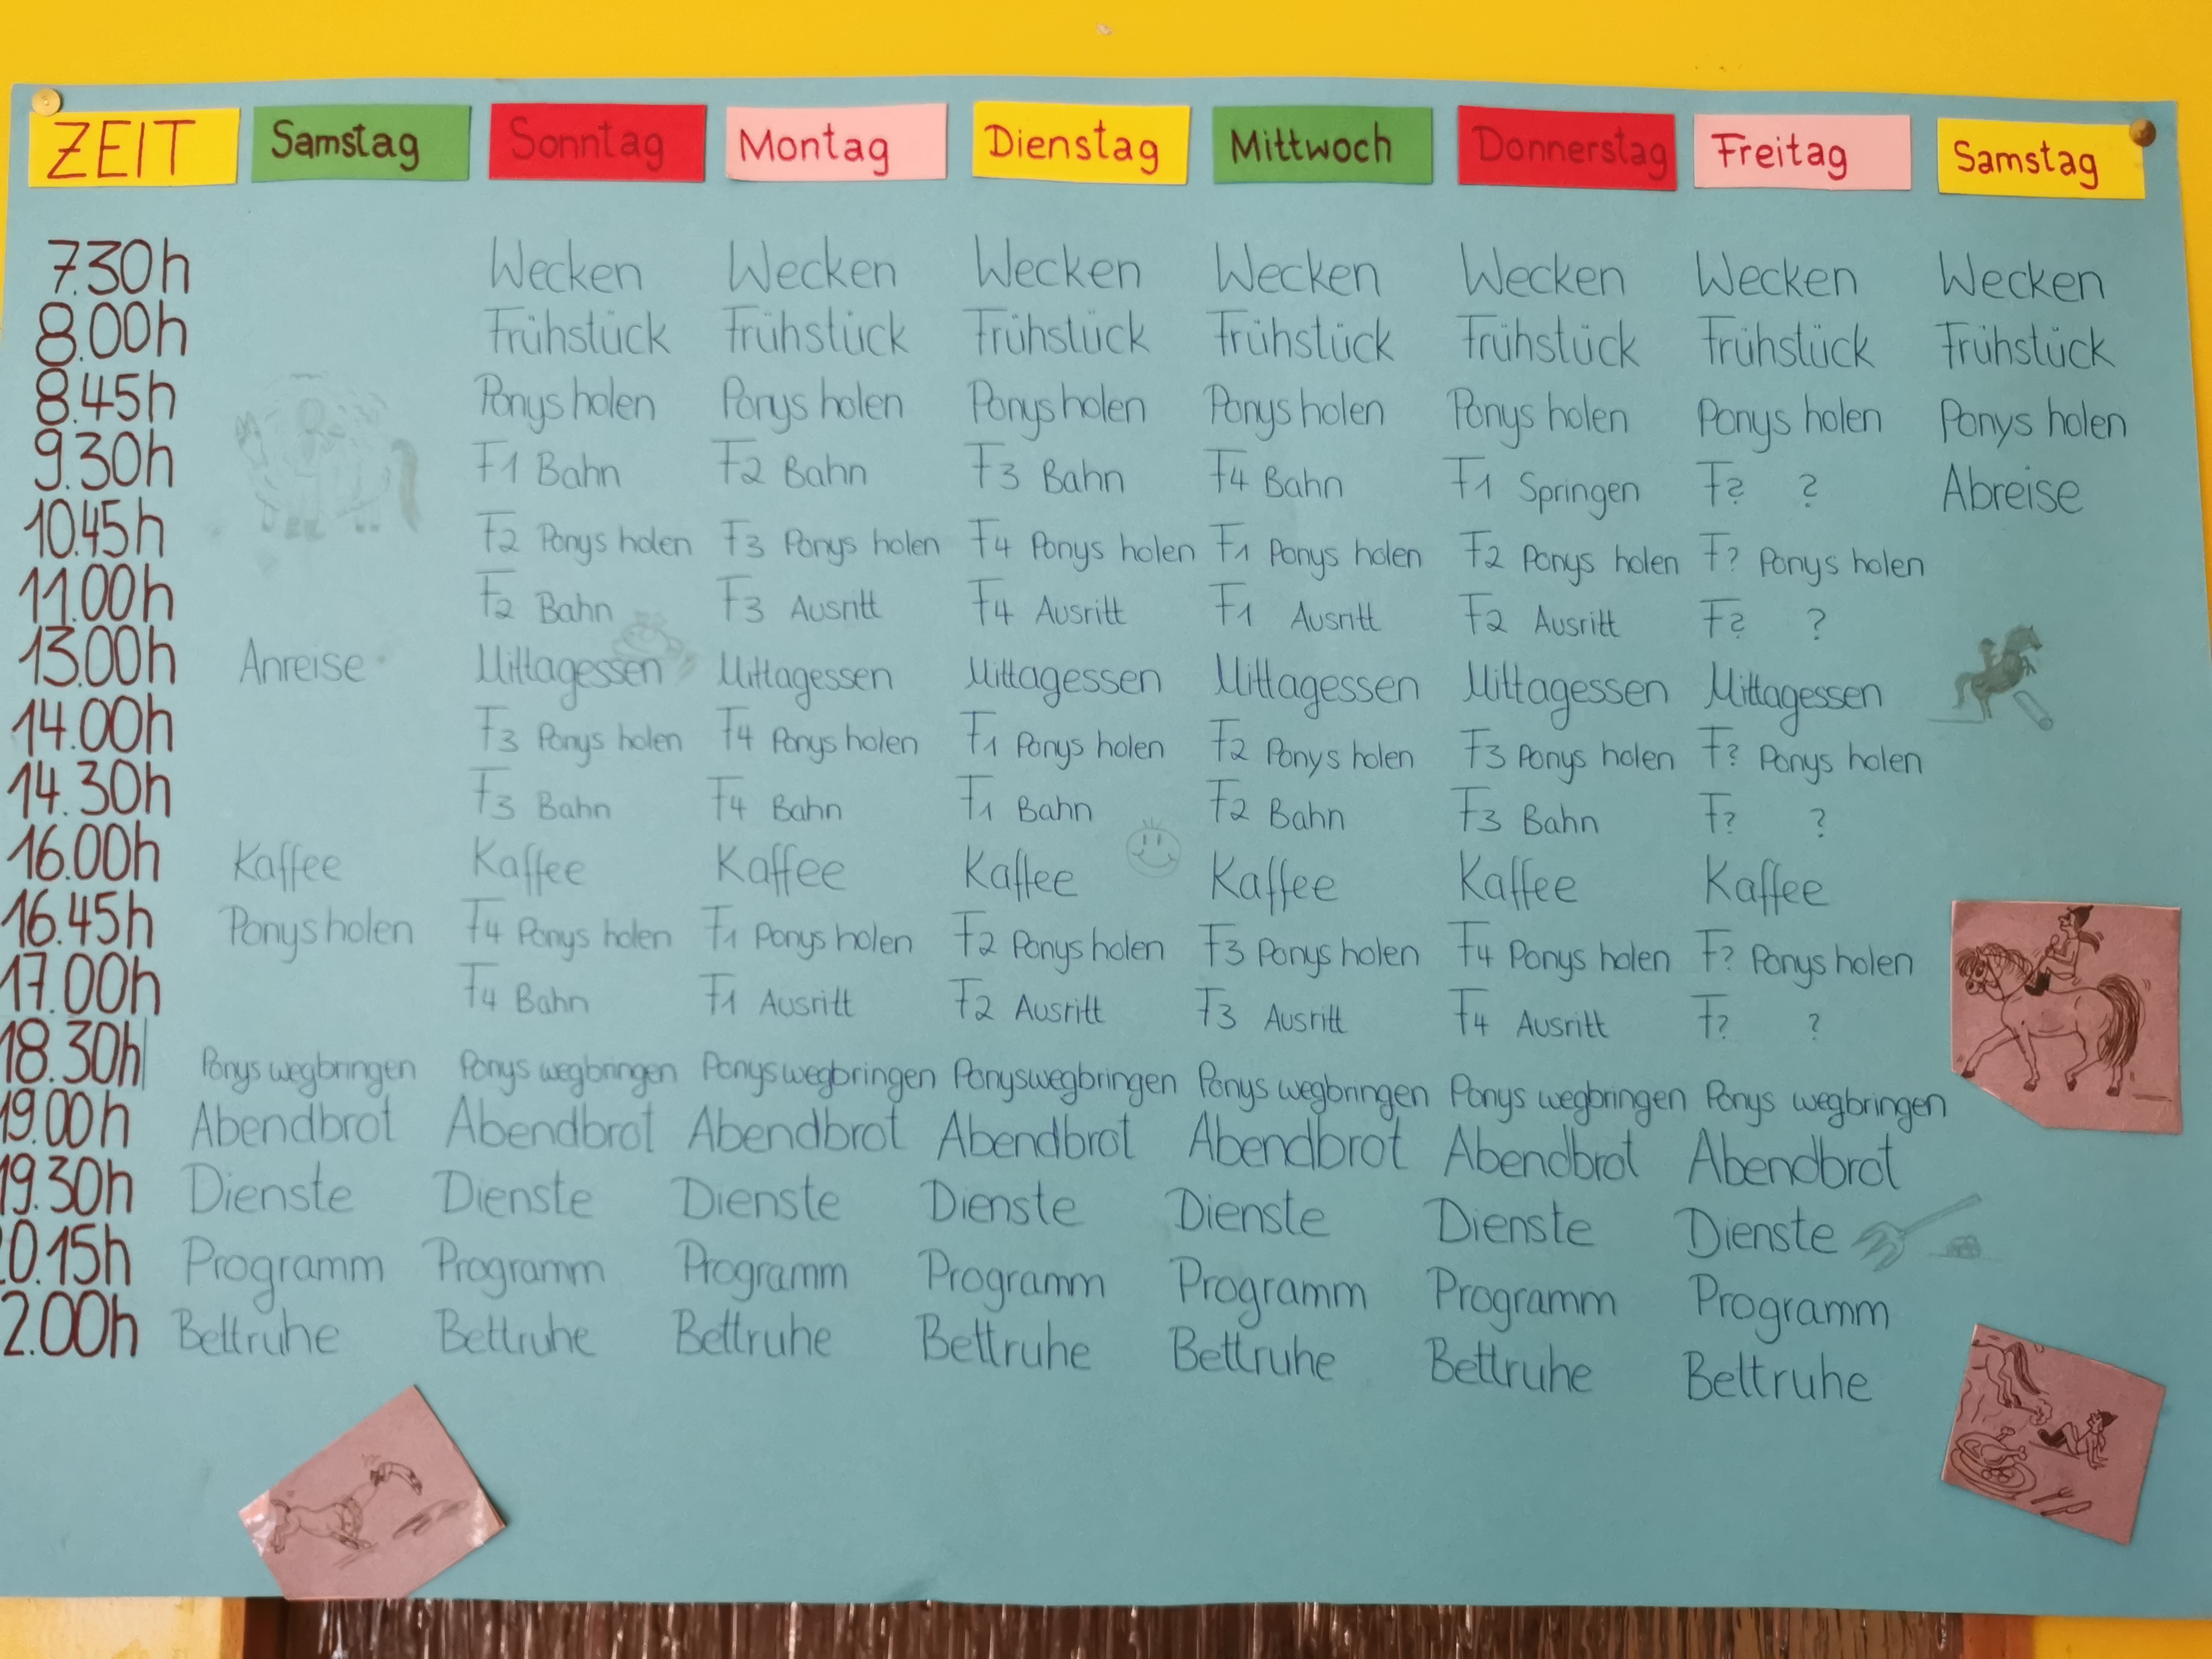 ZEIT Samstag Sonntag Montag Dienstag Mittwoch Donnerstag Freitag Samstag
7.30h Wecken Wecken Wecken Wecken Wecken Wecken Wecken
8.00h Frühstück Frühstück Frühstück Frühstück Frühstück Frühstück Frühstück
8.45h Ponys holen Ponys holen Ponys holen Ponys holen Ponys holen Ponys holen Ponys holen
9.30h F1 Bahn F2 Bahn F3 Bahn F4 Bahn F1 Springen F? ? Abreise
10.45h F2 Ponys holen F3 Ponys holen F4 Ponys holen F1 Ponys holen F2 Ponys holen F? Ponys holen
11.00h F2 Bahn F3 Ausritt F4 Ausritt F1 Ausritt F2 Ausritt F? ?
13.00h Anreise Mittagessen Mittagessen Mittagessen Mittagessen Mittagessen Mittagessen
14.00h F3 Ponys holen F4 Ponys holen F1 Ponys holen F2 Ponys holen F3 Ponys holen F? Ponys holen
14.30h F3 Bahn F4 Bahn F1 Bahn F2 Bahn F3 Bahn F? ?
16.00h Kaffee Kaffee Kaffee Kaffee Kaffee Kaffee Kaffee
16.45h Ponys holen F4 Ponys holen F1 Ponys holen F2 Ponys holen F3 Ponys holen F4 Ponys holen F? Ponys holen
17.00h F4 Bahn F1 Ausritt F2 Ausritt F3 Ausritt F4 Ausritt F? ?
18.30h Ponys wegbringen Ponys wegbringen Ponys wegbringen Ponys wegbringen Ponys wegbringen Ponys wegbringen Ponys wegbringen
19.00h Abendbrot Abendbrot Abendbrot Abendbrot Abendbrot Abendbrot Abendbrot
19.30h Dienste Dienste Dienste Dienste Dienste Dienste Dienste
0.15h Programm Programm Programm Programm Programm Programm Programm
2.00h Bettruhe Bettruhe Bettruhe Bettruhe Bettruhe Bettruhe Bettruhe